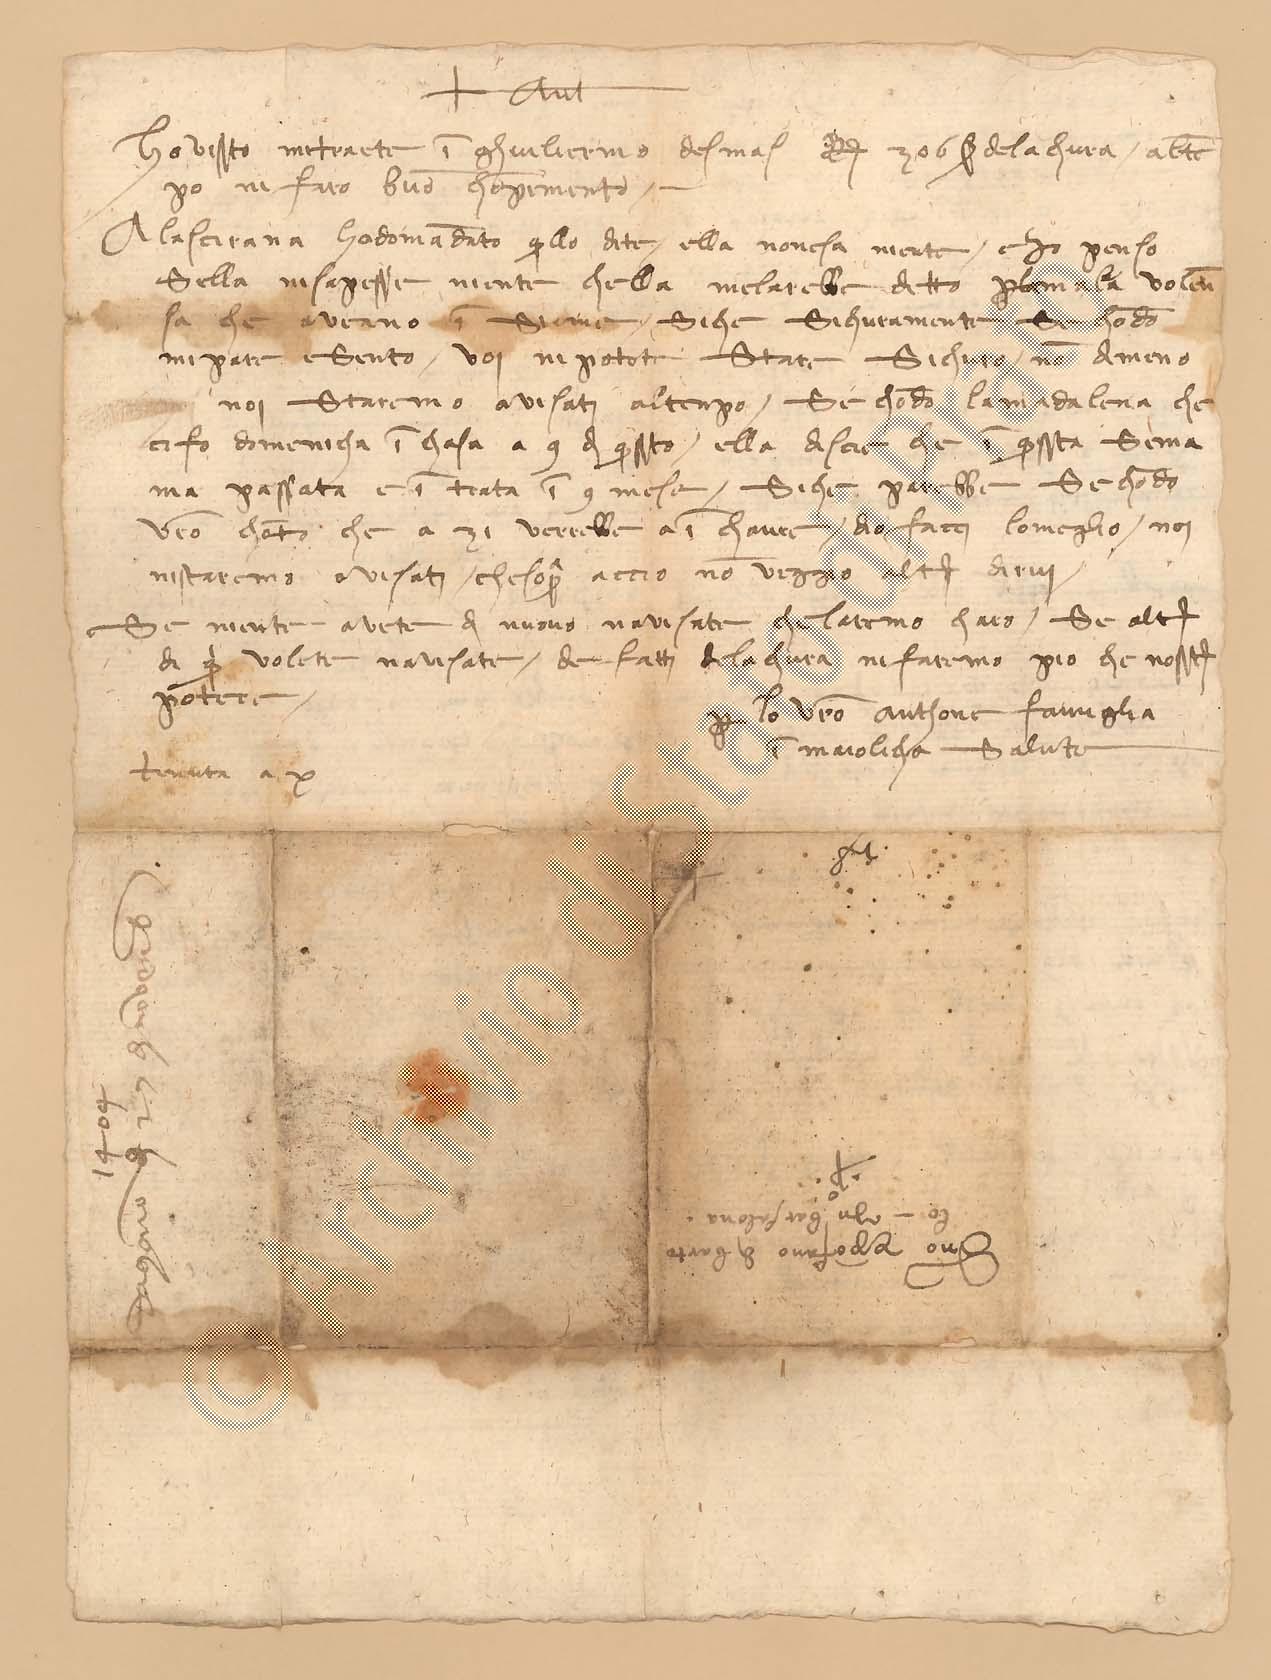 + Aut
Ho visto mettraete ī ghuiliermo desmas 306 dela chura / al tē
po ne faro buō chōpimento /
A la scirana ho domādato q̄llo dite / ella nonesa niente / e Io penso
Sella nesapesse niente chella melarebbe detto p la mala volen
sa che aveano ī Sieme / Siche Sichuramente Se chōdo
mi pare e Sento / voi ne potete Stare Sichuro / nō dimeno
noi Staremo avisati al tenpo / Se chōdo la madalena che
ci fo domenicha ī chasa a 9 di q̄sto / ella discie che ī q̄sta Sema
ma passata e ī trata ī 9 mese / Siche parebbe Se chōdo
vr̄o chōto che a 21 verrebbe a ī chaure / dio facci lo meglio / noi
ni staremo avisati / che sop̄ accio nō veggio altr̄ dirvi /
Se niente avete di nuovo navisate che laremo charo / Se altr̄
di q̄ volete navisate / de fatti dela chura ne faremo pio che nostr̄
potere /
p lo vr̄o Anthone famiglia
ī maiolicha Salute
tenuta a x
1404
Xpofano di barto
lo in barsalona